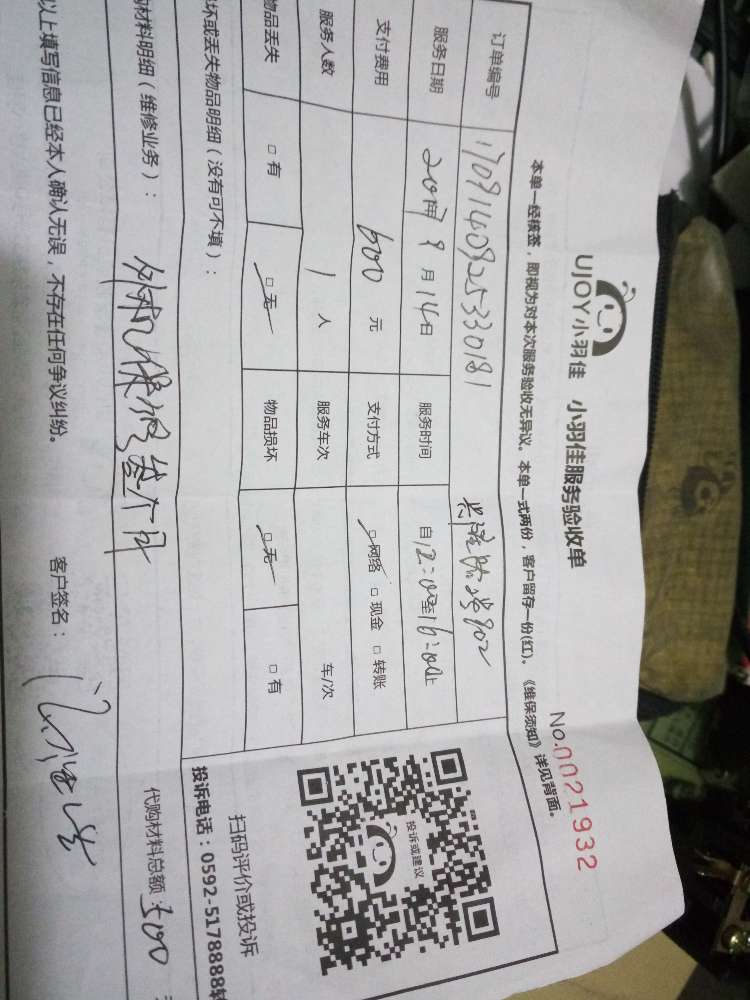 UJOY小羽佳 小羽佳服务验收单
No.0021932
本单一经核签，即视为对本次服务验收无异议。本单一式两份，客户留存一份(红)。《维保须知》详见背面。
订单编号 1709140925330181
服务日期 2017年9月14日 服务时间 自12:00至16:00止
支付费用 600 元 支付方式 □网络 □现金 □转账
服务人数 1 人 服务车次 车/次
物品丢失 □有 □无 物品损坏 □无 □有
坏或丢失物品明细（没有可不填）：
投诉或建议
扫码评价或投诉
投诉电话：0592-5178888转
购材料明细（维修业务）： 外机 叁个月
代购材料总额：500
以上填写信息已经本人确认无误，不存在任何争议纠纷。 客户签名：